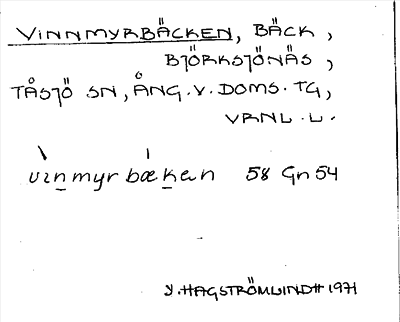 VINNMYRBÄCKEN, BÄCK,
BJÖRKSJÖNÄS,
TÅSJÖ SN, ÅNG.V.DOMS.TG,
VRNL.L.
vınmyrbækan 58 Gn54
Y.HAGSTRÖMLINDH 1971